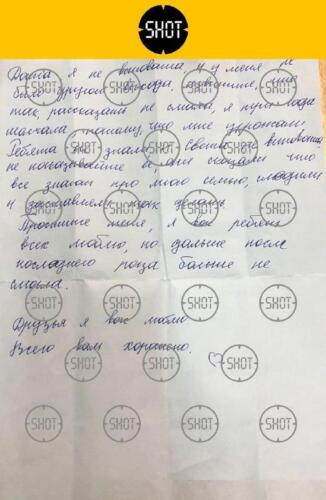 SHOT
я не виновата, и у меня не
было другого выхода, простите, мне
так, рассказать не смогла, я пол года
молчала потому, что мне угрожали
Ребята не знали, Света не виновата
не наказывайте а они сказали что
все знали про мою семью, следили
и заставляли так делать
Простите меня, я вас ребята
всех люблю, но дальше после
последнего раза больше не
смогла.
Друзья я вас люблю
Всего вам хорошего.